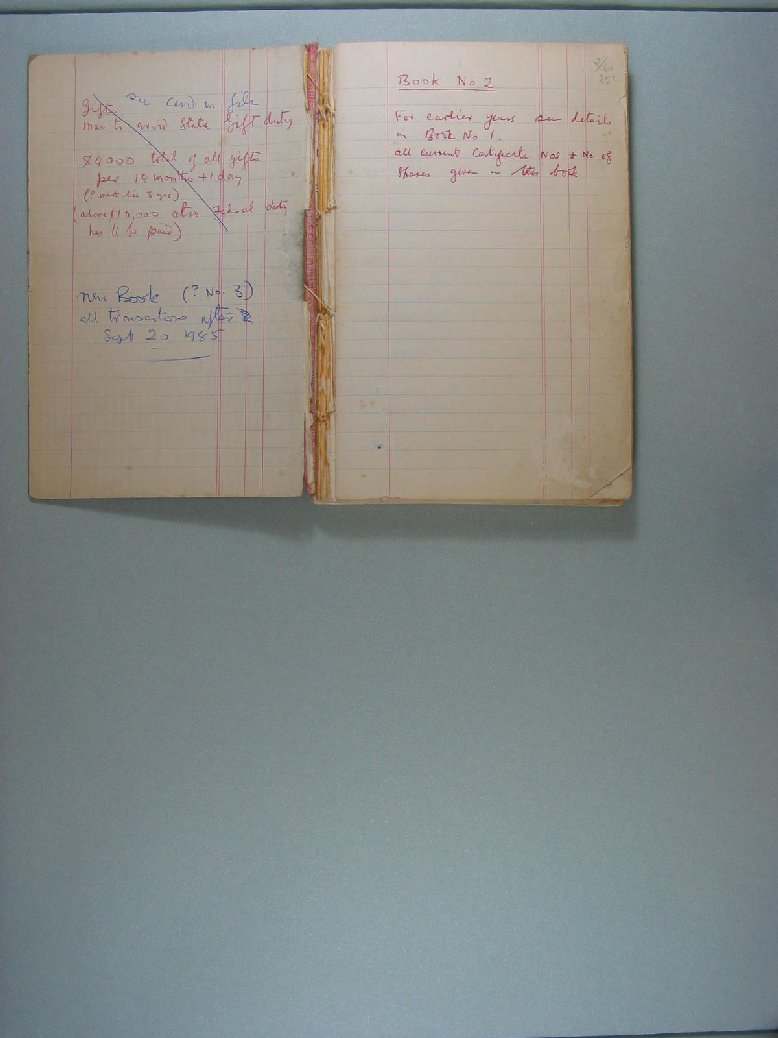 Gifts see card in file
max to avoid State Gift duty
$4000 total of all gifts
per 18 months + 1 day
(above $10,000 also Federal duty
has to be paid)
New Book (? No 3)
all transactions after
Sept 20 1985
Book No 2
For earlier years see details
in Book No 1.
all current Certificate Nos + No of
Shares given in this book